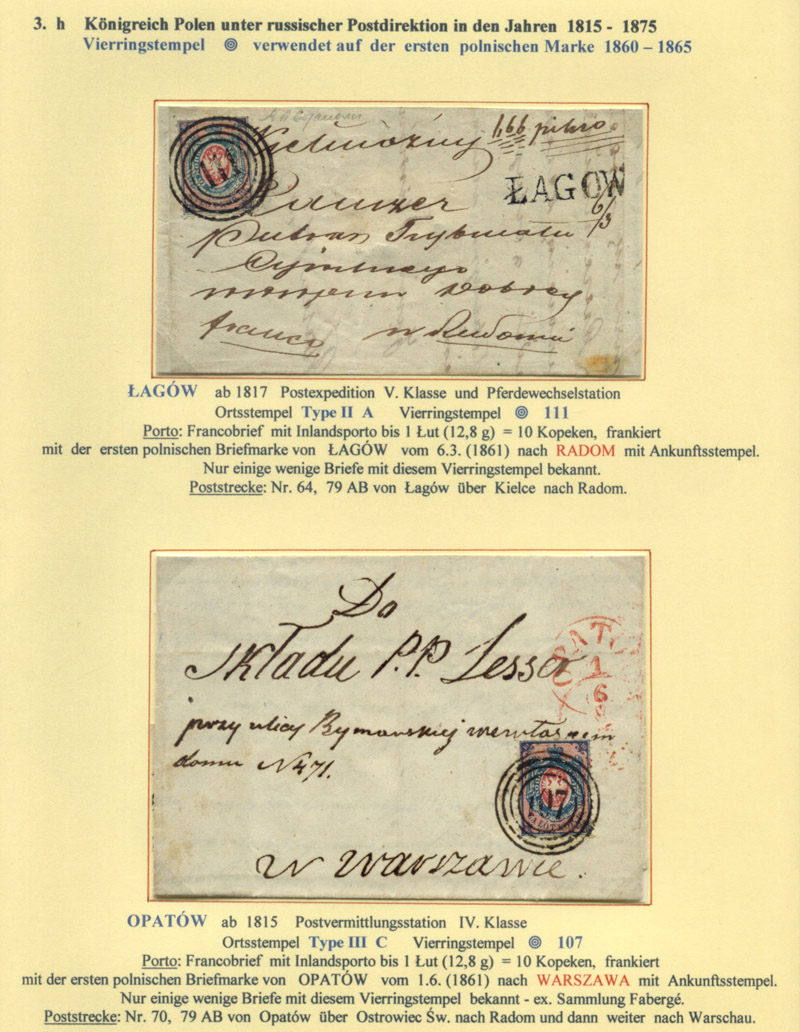 3. h Königreich Polen unter russischer Postdirektion in den Jahren 1815 - 1875
Vierringstempel verwendet auf der ersten polnischen Marke 1860 – 1865
ŁAGÓW
6/3
franco w Radomiu
ŁAGÓW ab 1817 Postexpedition V. Klasse und Pferdewechselstation
Ortsstempel Type II A Vierringstempel 111
Porto: Francobrief mit Inlandsporto bis 1 Łut (12,8 g) = 10 Kopeken, frankiert
mit der ersten polnischen Briefmarke von ŁAGÓW vom 6.3. (1861) nach RADOM mit Ankunftsstempel.
Nur einige wenige Briefe mit diesem Vierringstempel bekannt.
Poststrecke: Nr. 64, 79 AB von Łagów über Kielce nach Radom.
Do
Składu P.P. Lesser
przy ulicy Rymarskiej we własnem
domu N 471.
1
6
107
w Warszawie.
OPATÓW ab 1815 Postvermittlungsstation IV. Klasse
Ortsstempel Type III C Vierringstempel 107
Porto: Francobrief mit Inlandsporto bis 1 Łut (12,8 g) = 10 Kopeken, frankiert
mit der ersten polnischen Briefmarke von OPATÓW vom 1.6. (1861) nach WARSZAWA mit Ankunftsstempel.
Nur einige wenige Briefe mit diesem Vierringstempel bekannt - ex. Sammlung Fabergé.
Poststrecke: Nr. 70, 79 AB von Opatów über Ostrowiec Św. nach Radom und dann weiter nach Warschau.